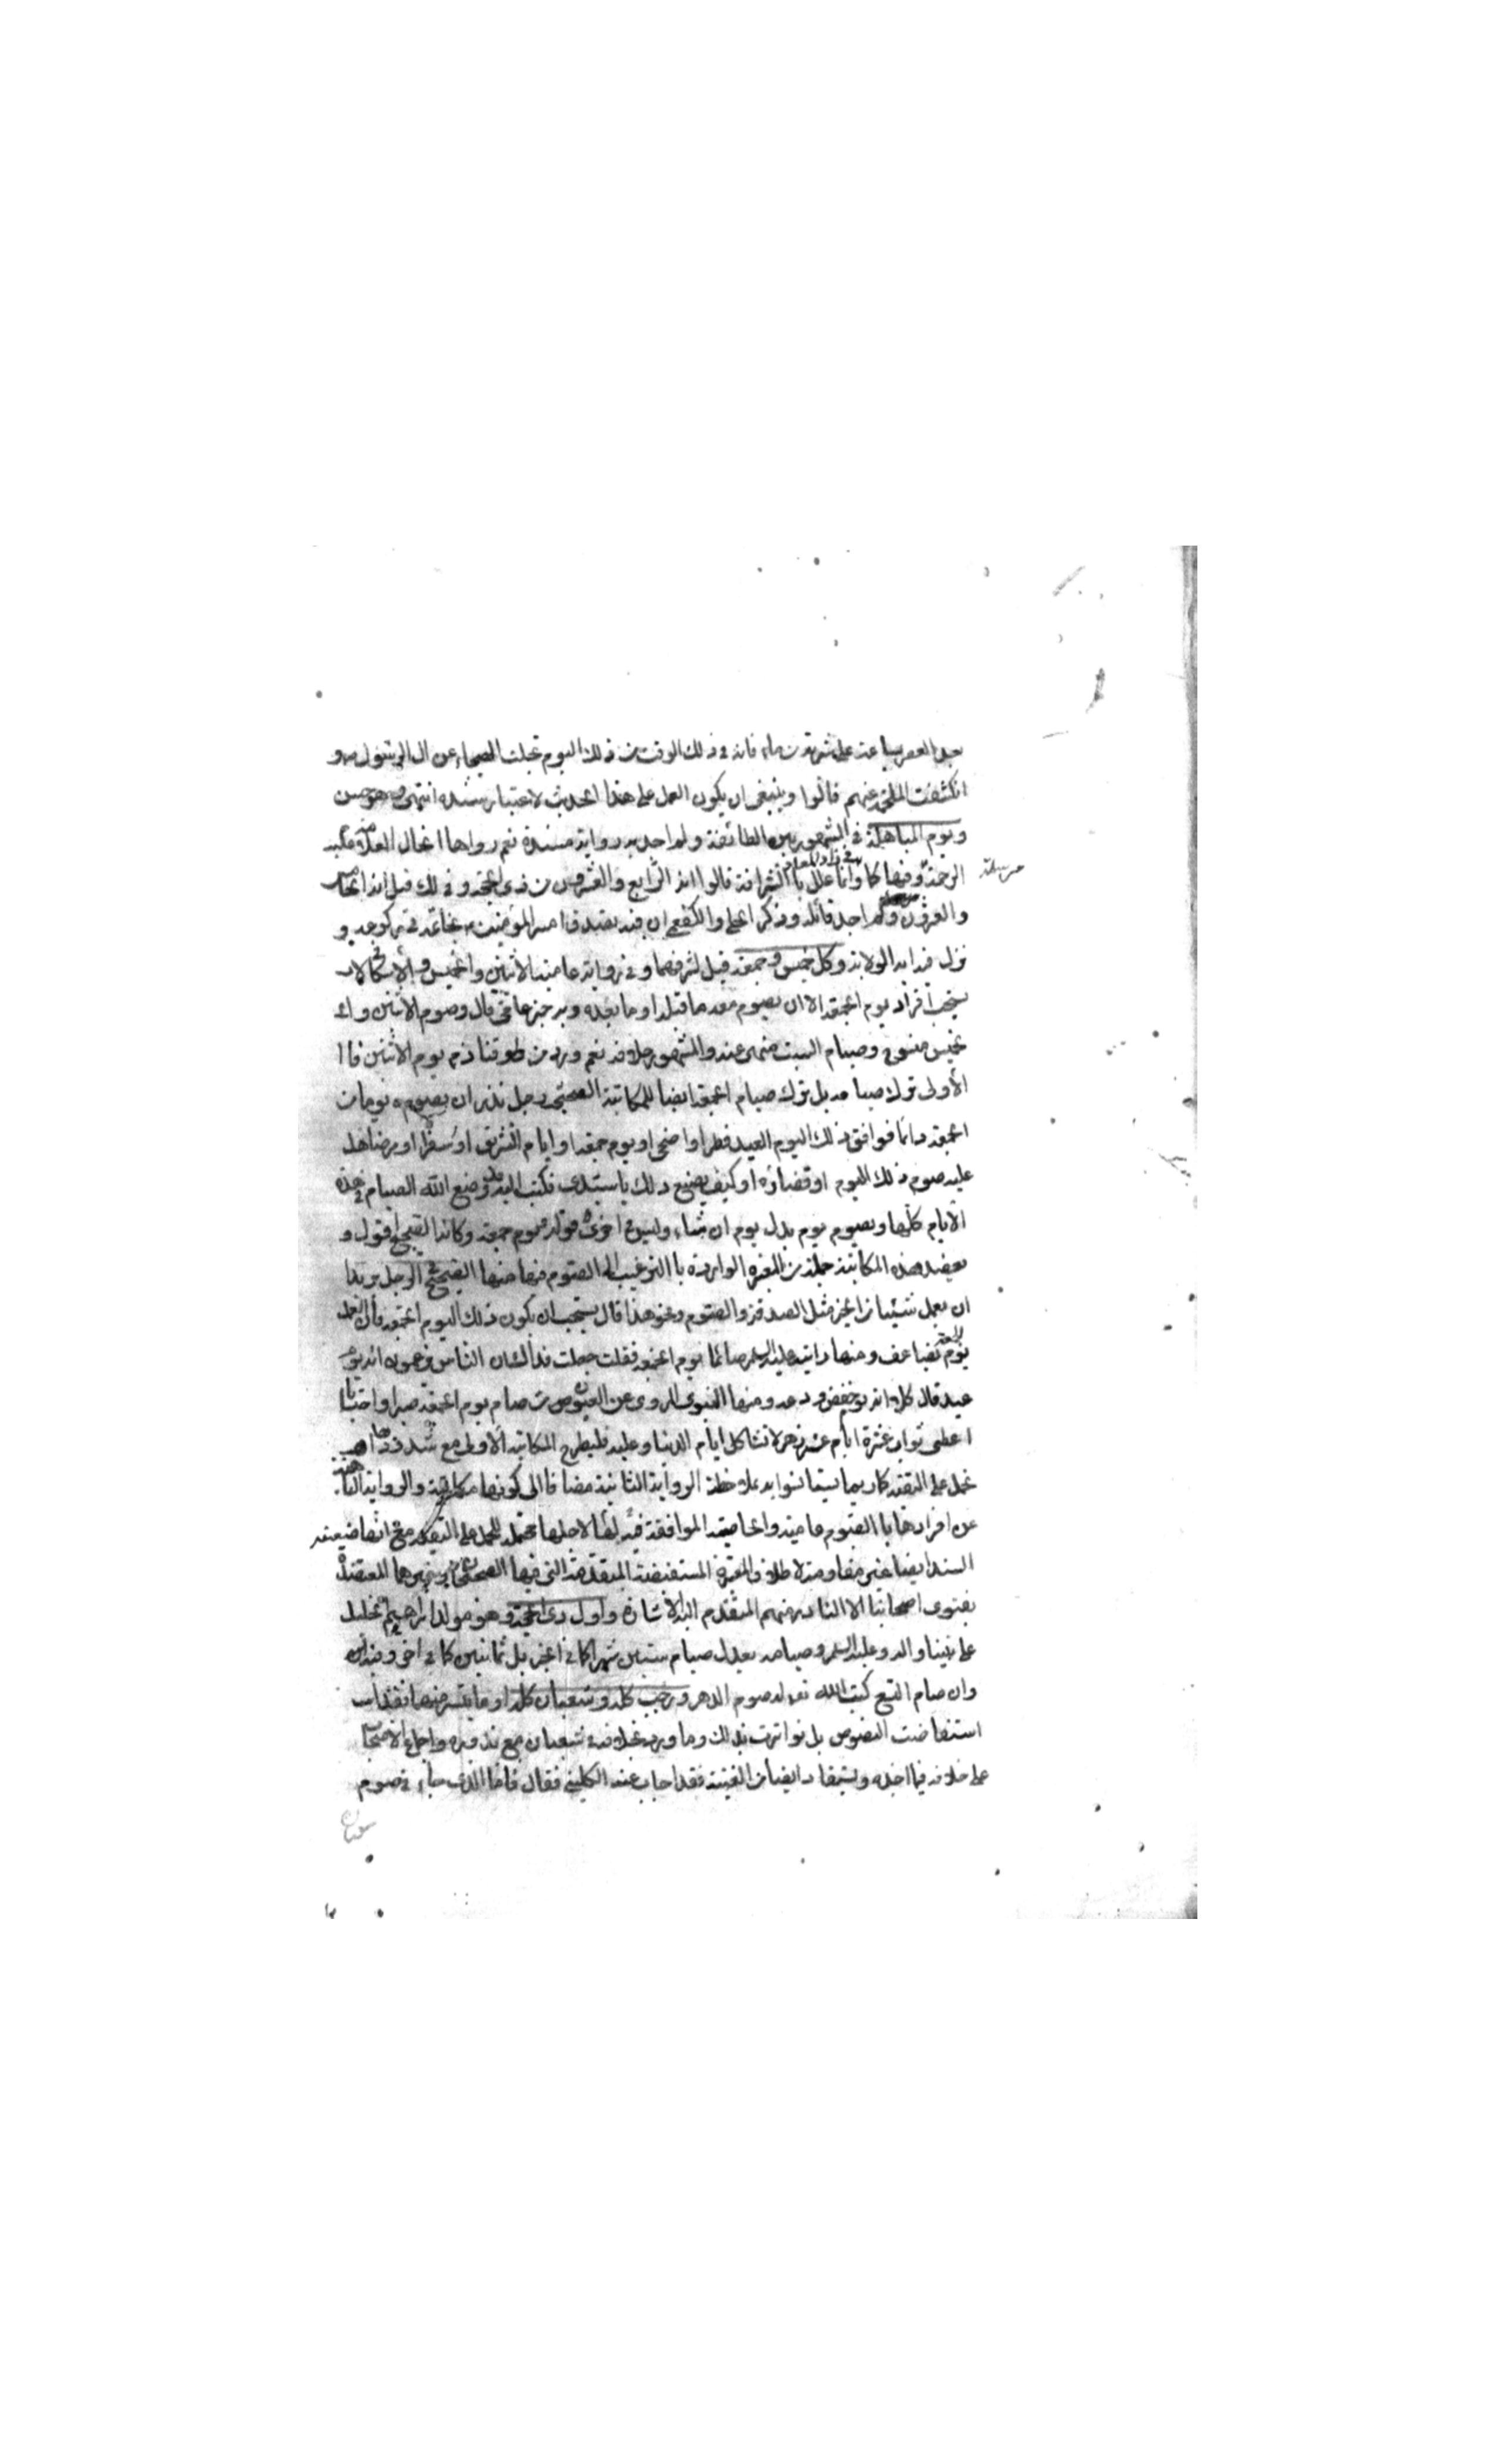 بعد العصر بساعة على شربة من ماء فانه في ذلك الوقت من ذلك اليوم تجلت الهيجاء عن ال الرسول ص و
انكشفت الملحمة عنهم قالوا وينبغي ان يكون العمل على هذا الحديث لاعتبار سنده انتهى وهو حسن
ويوم المباهلة في المشهور بين الطائفة ولم اجد به رواية مسندة نعم رواها الخال العلامة عليه
الرحمة في زاد المعاد مرسلة وفيها كما واما علل بالشرافة قالوا انه الرابع والعشرون من ذي الحجة وفي ذلك قيل انه الخامس
والعشرون ولم اجد قائله وذكر الحلي والكفعمي ان فيه تصدق امير المؤمنين ع بخاتمه في ركوعه و
نزل فيه اية الولاية وكل خميس وجمعة قيل لشرفهما وفي رواية عامية الاثنين والخميس وفي الاسكافي لا
يستحب افراد يوم الجمعة الا ان يصوم معه ما قبله او ما بعده وبه خبر عامي قال وصوم الاثنين وال
خميس منسوخ وصيام السبت منهي عنه والمشهور خلافه نعم ورد من طرقنا ذم يوم الاثنين فا
الأولى ترك صيامه بل ترك صيام الجمعة ايضا للمكاتبة الصحيح رجل نذر ان يصوم يوما من
الجمعة دائما فوافق ذلك اليوم العيد فطر او اضحى او يوم جمعة او ايام التشريق او سفر او مرض هل
عليه صوم ذلك اليوم او قضاؤه او كيف يصنع ذلك يا سيدي فكتب اليه قد وضع الله الصيام في هذه
الأيام كلها ويصوم يوم بدل يوم ان شاء وليس في اخرى قوله يوم جمعة وكانه الصحيح اقول و
يعضد هذه المكاتبة جملة من المعتبرة الواردة بالترغيب الى الصوم فيها منها الصحيح في الرجل يريد ا
ان يعمل شيئا من الخير مثل الصدقة والصوم ونحو هذا قال يستحب ان يكون ذلك اليوم الجمعة فان العمل
يوم الجمعة يضاعف ومنها رايته عليه السلم صائما يوم الجمعة فقلت جعلت فداك ان الناس يزعمون انه يوم
عيد قال كلا انه يوم خفض ودعة ومنها النبوي المروي عن العيون من صام يوم الجمعة صبرا واحتسابا
اعطى ثواب عشرة ايام غر زهر لا تشاكل ايام الدنيا وعليه فليطرح المكاتبة الاولى مع شذوذها او
تحمل على التقية كما ربما يستانس به بملاحظة الرواية الثانية مضافا الى كونها مكاتبة والرواية الناهية
عن افرادها بالصوم عامية والخاصية الموافقة في لها لاجلها محتملة للحمل على التقية مع انها ضعيفة
السند ايضا غير مقاومة لاطلاق المعتبرة المستفيضة المتقدمة التي فيها الصحيح وغيرها المعتضدة
بفتوى اصحابنا الا النادر منهم المتقدم اليه الاشارة واول ذي الحجة وهو مولد ابراهيم الخليل
على نبينا واله وعليه السلم وصيامه يعدل صيام ستين شهرا كما في الخبر بل ثمانين كما في اخر وفيه
وان صام التسع كتب الله تع له صوم الدهر ورجب كله وشعبان كله او ما يتيسر منهما فقد
استفاضت النصوص بل تواترت بذلك وما ورد بخلافه في شعبان مع شذوذه واجماع الاصحاب
على خلافه فيما اجده ويستفاد ايضا من الغنية فقد اجاب عنه الكليني فقال فاما الذي جاء في صوم
شعبان